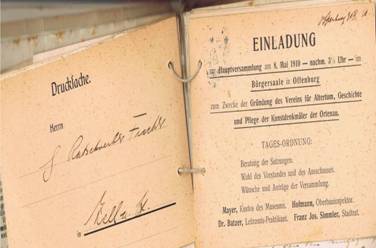 Drucksache.
Herrn
EINLADUNG
zur Hauptversammlung am 8. Mai 1910 — nachm. Uhr — im
Bürgersaale in Offenburg
zum Zwecke der Gründung des Vereins für Altertum, Geschichte
und Pflege der Kunstdenkmäler der Ortenau.
TAGES-ORDNUNG:
Beratung der Satzungen.
Wahl des Vorstandes und des Ausschusses.
Wünsche und Anträge der Versammlung.
Mayer, Kustos des Museums. Hofmann, Oberbauinspektor.
Dr. Batzer, Lehramts-Praktikant. Franz Jos. Simmler, Stadtrat.